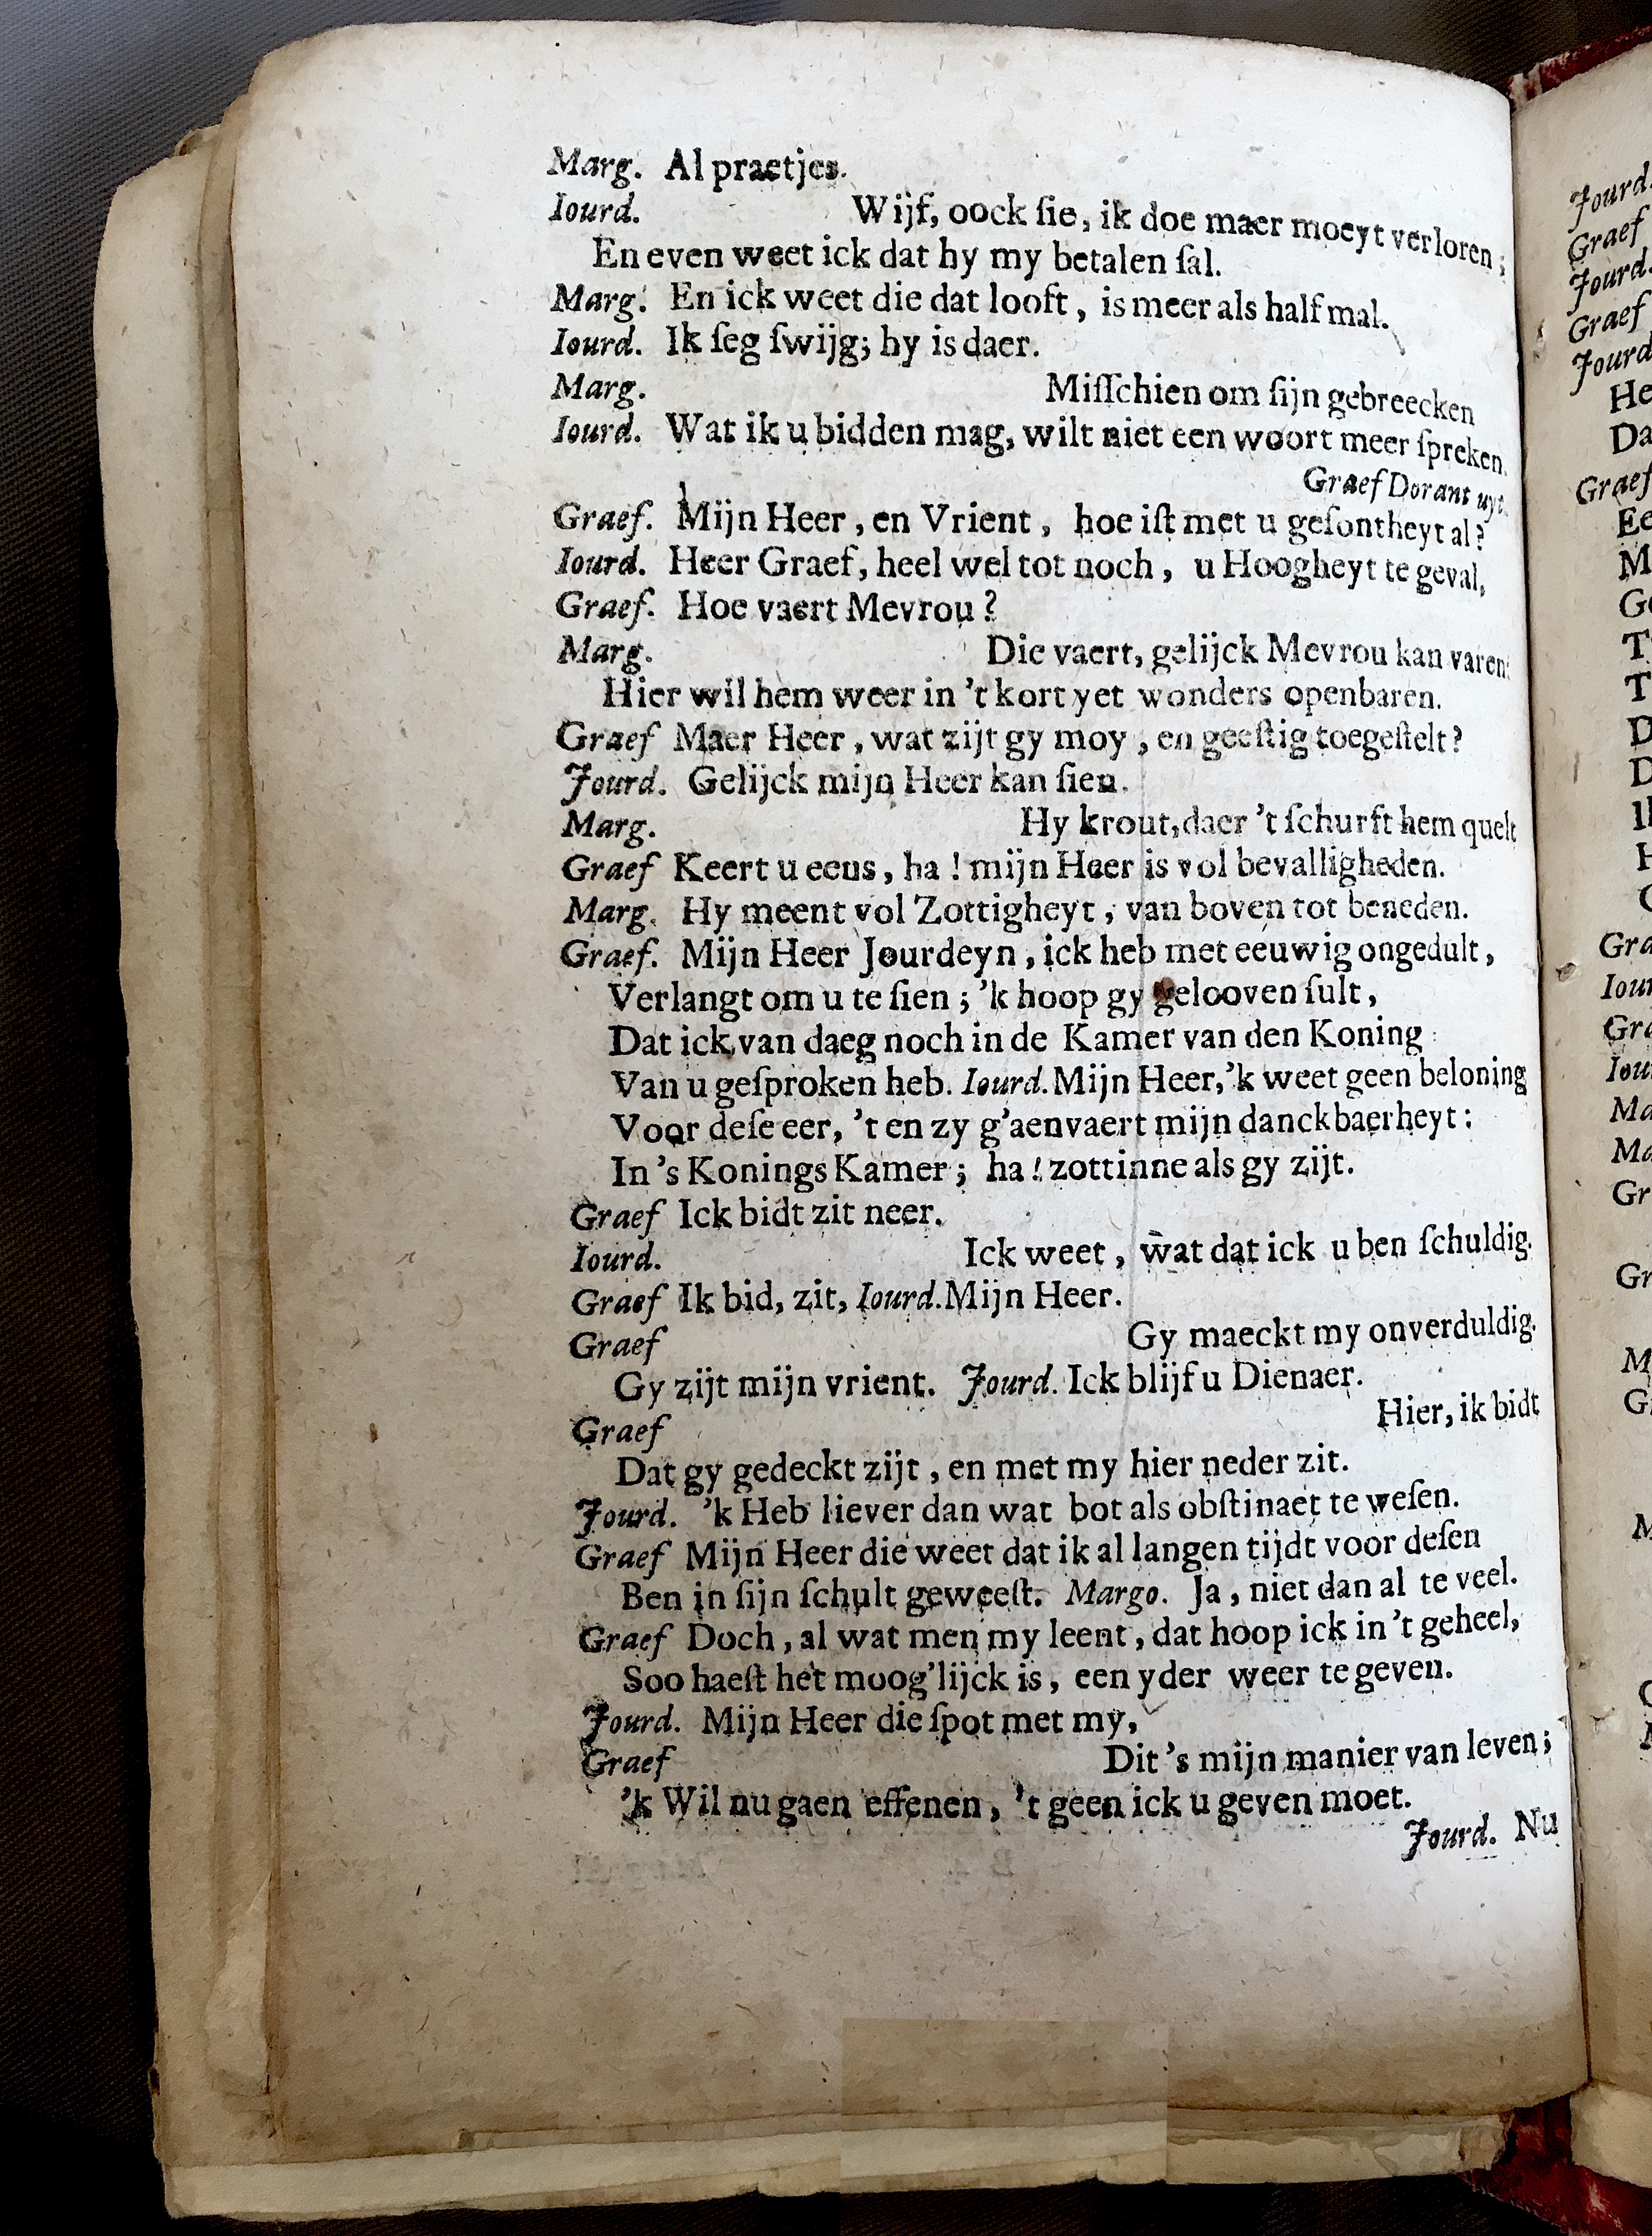 Marg. Al praetjes.
Iourd. Wijf, oock ſie, ik doe maer moeyt verloren;
En even weet ick dat hy my betalen ſal.
Marg. En ick weet die dat looft, is meer als half mal.
Iourd. Ik ſeg ſwijg; hy is daer.
Marg. Miſſchien om ſijn gebreecken
Iourd. Wat ik u bidden mag, wilt niet een woort meer ſpreken.
Graef Dorant uyt.
Graef. Mijn Heer, en Vrient, hoe iſt met u geſontheyt al?
Iourd. Heer Graef, heel wel tot noch, u Hoogheyt te geval,
Graef. Hoe vaert Mevrou?
Marg. Die vaert, gelijck Mevrou kan varen:
Hier wil hem weer in 't kort yet wonders openbaren.
Graef Maer Heer, wat zijt gy moy, en geeſtig toegeſtelt?
Jourd. Gelijck mijn Heer kan ſien.
Marg. Hy krout, daer 't ſchurft hem quelt
Graef Keert u eens, ha! mijn Heer is vol bevalligheden.
Marg. Hy meent vol Zottigheyt, van boven tot beneden.
Graef. Mijn Heer Jourdeyn, ick heb met eeuwig ongedult,
Verlangt om u te ſien; 'k hoop gy gelooven ſult,
Dat ick van daeg noch in de Kamer van den Koning
Van u geſproken heb. Iourd. Mijn Heer, 'k weet geen beloning
Voor deſe eer, 't en zy g'aenvaert mijn danckbaerheyt:
In 's Konings Kamer; ha! zottinne als gy zijt.
Graef Ick bidt zit neer.
Iourd. Ick weet, wat dat ick u ben ſchuldig.
Graef Ik bid, zit, Iourd. Mijn Heer.
Graef Gy maeckt my onverduldig.
Gy zijt mijn vrient. Jourd. Ick blijf u Dienaer.
Graef Hier, ik bidt
Dat gy gedeckt zijt, en met my hier neder zit.
Jourd. 'k Heb liever dan wat bot als obſtinaet te weſen.
Graef Mijn Heer die weet dat ik al langen tijdt voor deſen
Ben in ſijn ſchult geweeſt. Margo. Ja, niet dan al te veel.
Graef Doch, al wat men my leent, dat hoop ick in 't geheel,
Soo haeſt het moog'lijck is, een yder weer te geven.
Jourd. Mijn Heer die ſpot met my,
Graef Dit 's mijn manier van leven;
'k Wil nu gaen effenen, 't geen ick u geven moet.
Jourd. Nu
Jourd.
Graef
Jourd.
Graef
Jourd
He
Da
Graef